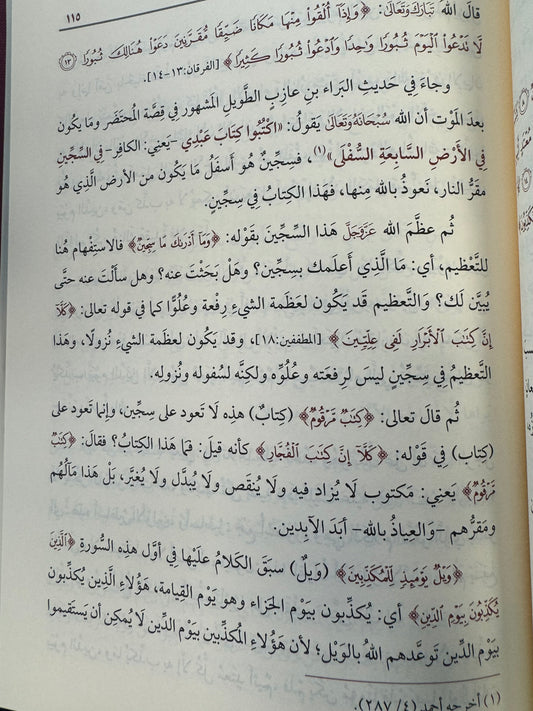 ١١٥
قالَ اللهُ تَبَارَكَ وَتَعَالَى: ﴿وَإِذَآ أُلْقُواْ مِنْهَا مَكَانًا ضَيِّقًا مُّقَرَّنِينَ دَعَوْاْ هُنَالِكَ ثُبُورًا ١٣
لَّا تَدْعُواْ ٱلْيَوْمَ ثُبُورًا وَٰحِدًا وَٱدْعُواْ ثُبُورًا كَثِيرًا﴾ [الفرقان:١٣-١٤].
وجاءَ في حَديثِ البَراء بنِ عازِبٍ الطَّويلِ المَشهورِ في قِصَّة المُحتَضَر ومَا يَكون
بعدَ المَوْت أن اللهَ سُبْحَانَهُ وَتَعَالَى يَقولُ: «اكْتُبُوا كِتَابَ عَبْدِي -يَعني: الكافِرِ- فِي السِّجِّينِ
فِي الأَرْضِ السَّابِعَةِ السُّفْلَى»(١)، فسِجِّينٌ هُو أَسفَلُ مَا يَكون من الأرض الَّذي هُو
مقَرُّ النار، نَعوذُ بالله مِنها، فهَذا الكِتابُ في سِجِّينٍ.
ثُم عظَّمَ الله عَزَّوَجَلَّ هَذا السِّجِّينَ بقَوْله: ﴿وَمَآ أَدْرَىٰكَ مَا سِجِّينٌ﴾ فالاستِفْهام هُنا
للتَّعْظيم، أي: مَا الَّذي أَعلَمك بسِجِّين؟ وهَلْ بَحَثْتَ عنه؟ وهل سأَلْتَ عنه حتَّى
يُبيَّن لَك؟ وَالتَّعظيم قَد يَكُون لعَظَمة الشيءِ رِفْعة وعُلُوًّا كما في قوله تعالى: ﴿كَلَّآ
إِنَّ كِتَٰبَ ٱلْأَبْرَارِ لَفِى عِلِّيِّينَ﴾ [المطففين:١٨]، وقد يَكون لعظمة الشيءِ نُزولًا، وهَذا
التَّعظيمُ في سِجِّينٍ ليس لرِفعَته وعُلُوِّه ولكِنَّه لسُفوله ونُزولِه.
ثُم قالَ تعالَى: ﴿كِتَٰبٌ مَّرْقُومٌ﴾ (كِتابٌ) هذِه لَا تَعود على سِجِّين، وإنَّما تَعود على
(كِتاب) في قَوْله: ﴿كَلَّآ إِنَّ كِتَٰبَ ٱلْفُجَّارِ﴾ كأنه قيلَ: فمَا هَذا الكِتابُ؟ فقالَ: ﴿كِتَٰبٌ
مَّرْقُومٌ﴾ يَعنِي: مَكتوب لَا يُزاد فيه ولَا يُنقَص ولَا يُبدَّل ولَا يُغيَّر، بَلْ هَذا مَآلُهُم
ومَقرُّهم -وَالعِياذُ بالله- أبَدَ الآبِدين.
﴿وَيْلٌ يَوْمَئِذٍ لِّلْمُكَذِّبِينَ﴾ (وَيلٌ) سبَقَ الكَلامُ علَيْها في أوَّل هذِه السُّورةِ ﴿ٱلَّذِينَ
يُكَذِّبُونَ بِيَوْمِ ٱلدِّينِ﴾ أي: يُكذِّبون بيَوْم الجَزاء وهو يَوْم القِيامة، هَؤُلاءِ الَّذين يُكذِّبون
بيَوْم الدين تَوعَّدهم اللهُ بالوَيْل؛ لأن هَؤُلاءِ المُكذِّبين بيَوْم الدِّين لَا يُمكِن أن يَستَقيموا
(١) أخرجه أحمد (٤/ ٢٨٧).